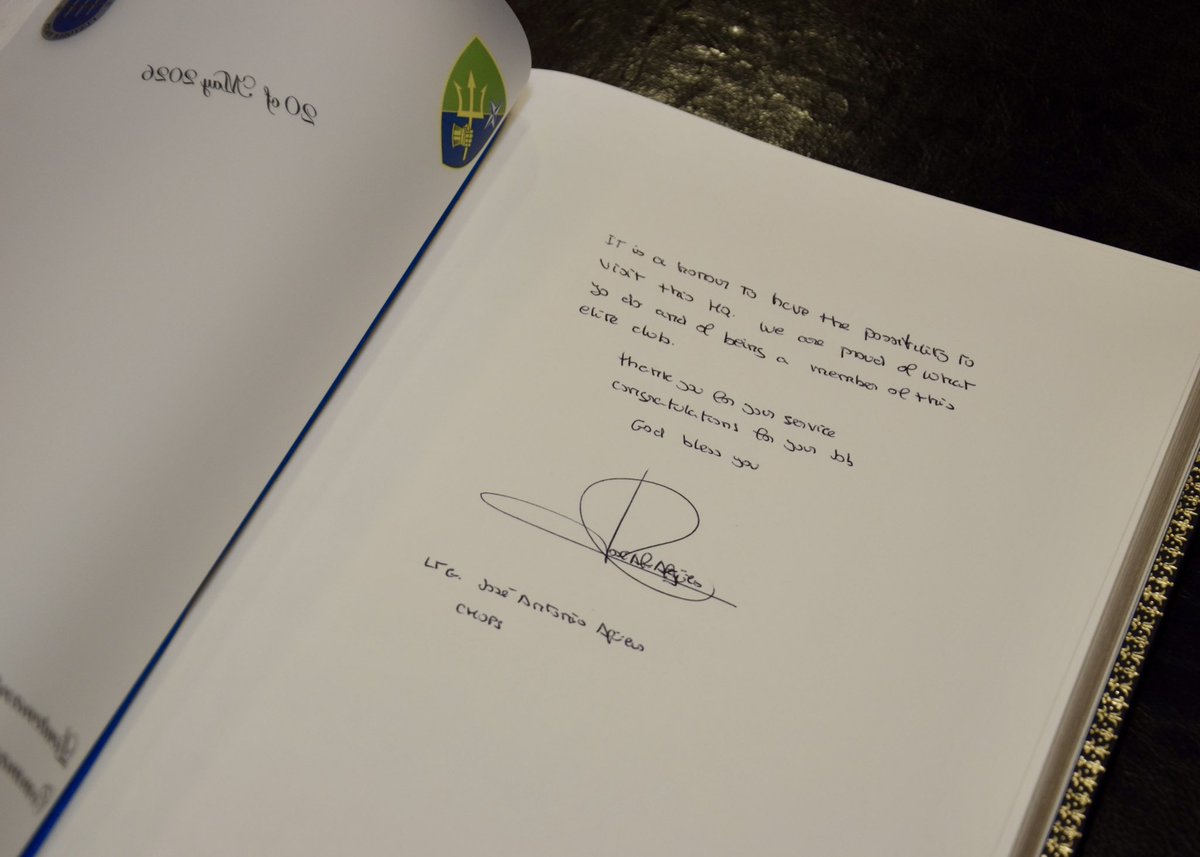 20 of May 2026
IT is a honour to have the possibility to
visit this HQ. We are proud of what
yo do and of being a member of this
elite club.
Thank you for your service
congratulations for your job
God bless you
LTG. José Antonio Agüero
CHOPS